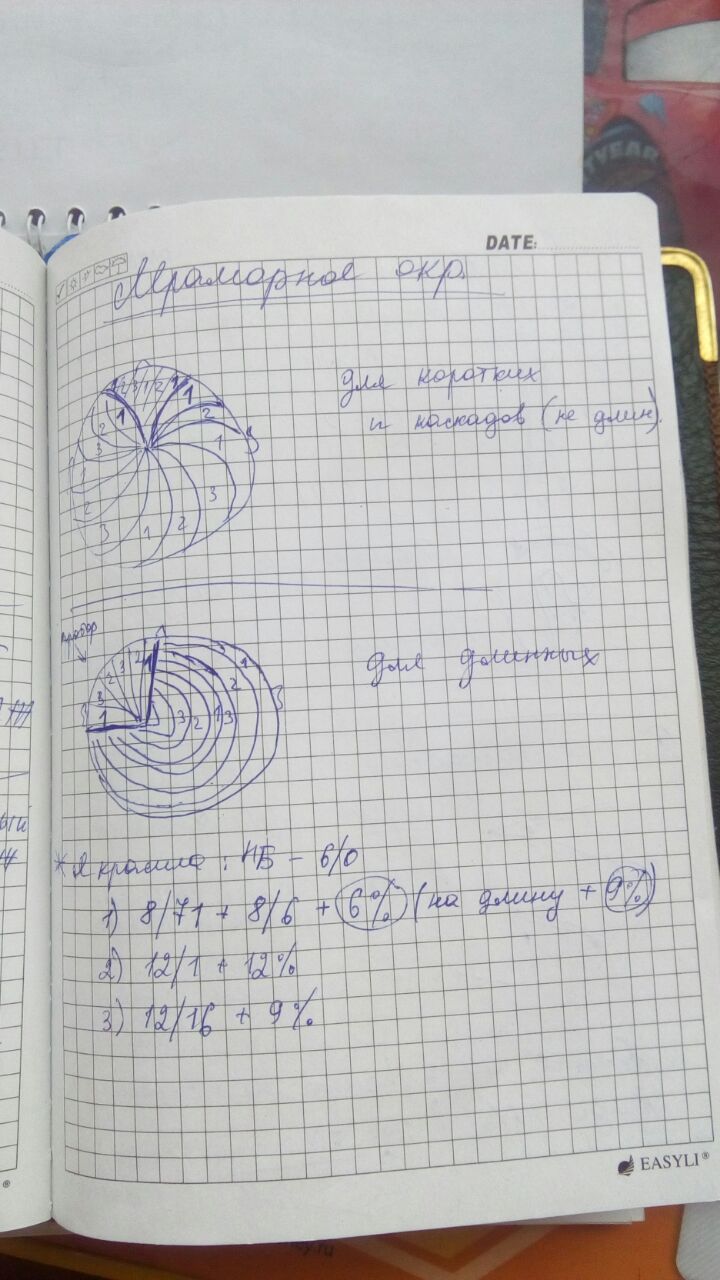 DATE:
Мраморное окр.
для коротких
и каскадов (не длин).
1 2 3 1 2 1
1 1
2 2
3 1 3
1
2 3
3 1 2
пробор
для длинных
1 2 3 2 3 1
3 2 1 3 2 1
* Я красила: НБ - 6/0
1) 8/71 + 8/6 + 6% (на длину + 9%)
2) 12/1 + 12%
3) 12/16 + 9%
EASYLI®
YEAR